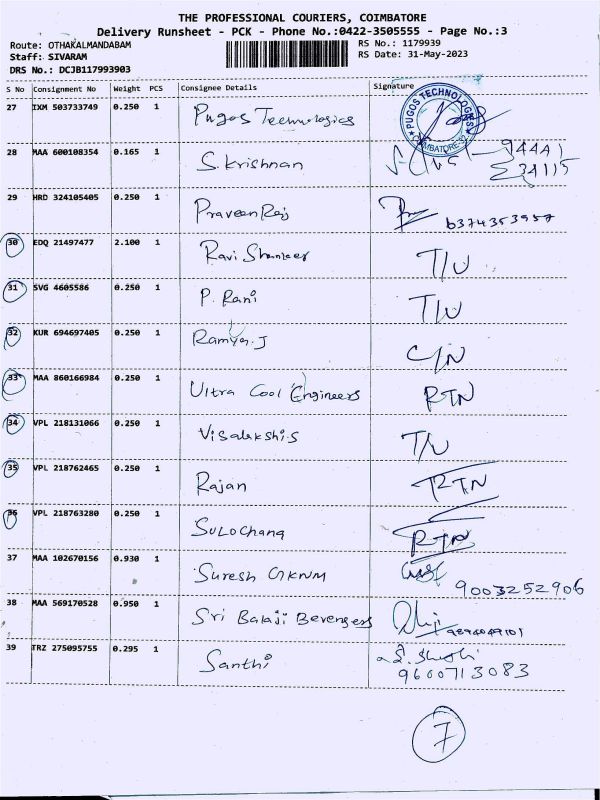 THE PROFESSIONAL COURIERS, COIMBATORE
Delivery Runsheet - PCK - Phone No.:0422-3505555 - Page No.:3
Route: OTHAKALMANDABAM RS No.: 1179939
Staff: SIVARAM RS Date: 31-May-2023
DRS No.: DCJB117993903
S No Consignment No Weight PCS Consignee Details Signature
27 IXM 503733749 0.250 1 Pugos Technologies
PUGOS TECHNOLOGIES COIMBATORE-32
28 MAA 600108354 0.165 1 S. Krishnan 94441
34115
29 HRD 324105405 0.250 1 PraveenRaj 6374353957
30 EDQ 21497477 2.100 1 Ravi Shankar T/U
31 SVG 4605586 0.250 1 P. Rani T/U
32 KUR 694697405 0.250 1 Ramya. J C/N
33 MAA 860166984 0.250 1 Ultra Cool Engineers RTN
34 VPL 218131066 0.250 1 Visalakshi.S T/U
35 VPL 218762465 0.250 1 Rajan RTN
36 VPL 218763280 0.250 1 Sulochana RTN
37 MAA 102670156 0.930 1 Suresh GKNM 9003252906
38 MAA 569170528 0.950 1 Sri Balaji Beverges
39 TRZ 275095755 0.295 1 Santhi
9600713083
7